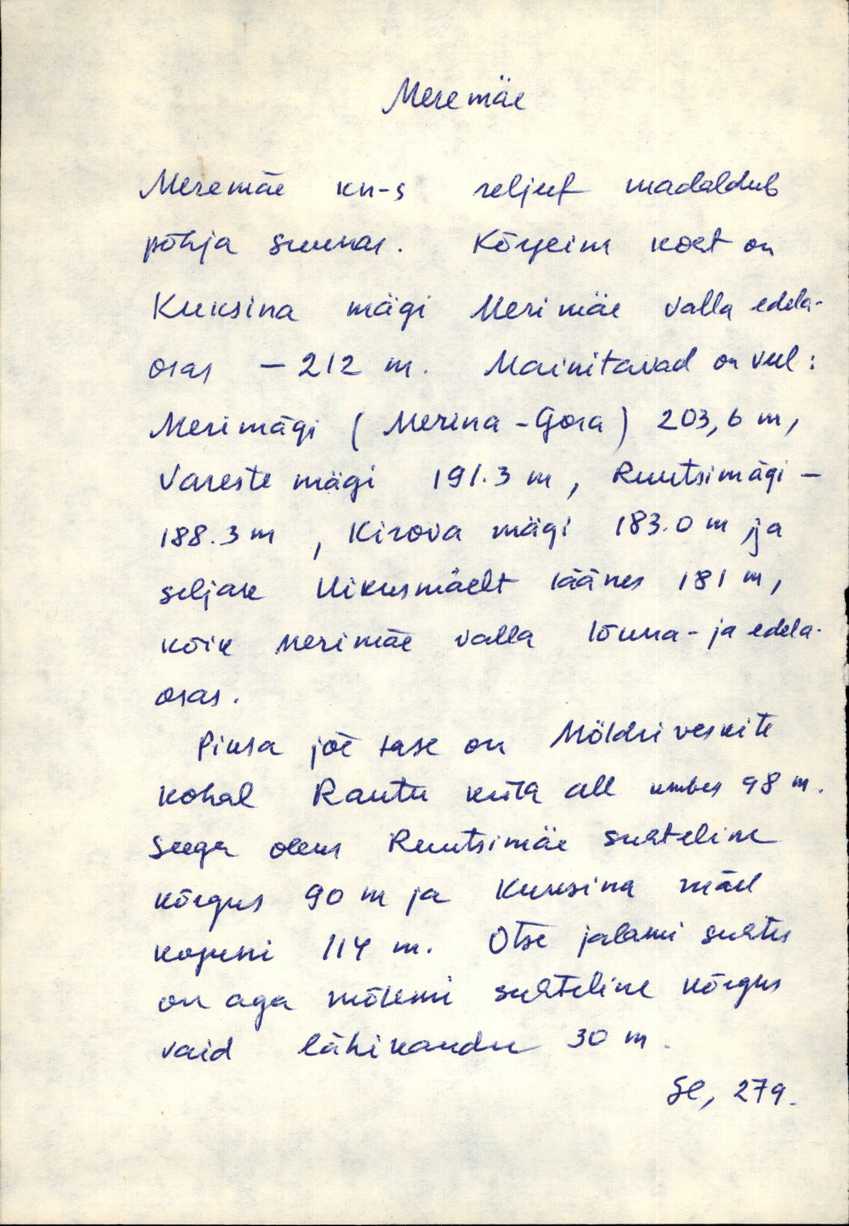 Meremäe
Meremäe kn-s reljeef madaldub
põhja suunas. Kõrgeim koht on
Kuksina mägi Merimäe valla edela-
osas – 212 m. Mainitavad on veel:
Merimägi (Merina-Gora) 203,6 m,
Vareste mägi 191.3 m, Ruutsimägi –
188.3 m, Kirova mägi 183.0 m ja
seljak Uikusmäelt läänes 181 m,
kõik Merimäe valla lõuna- ja edela-
osas.
Piusa jõe tase on Möldri veskite
kohal Rautu küla all umbes 98 m.
Seega oleks Ruutsimäe suhteline
kõrgus 90 m ja Kuksina mäel
koguni 114 m. Otse jalami suhtes
on aga mõlemi suhteline kõrgus
vaid lähikaudu 30 m.
Se, 279.